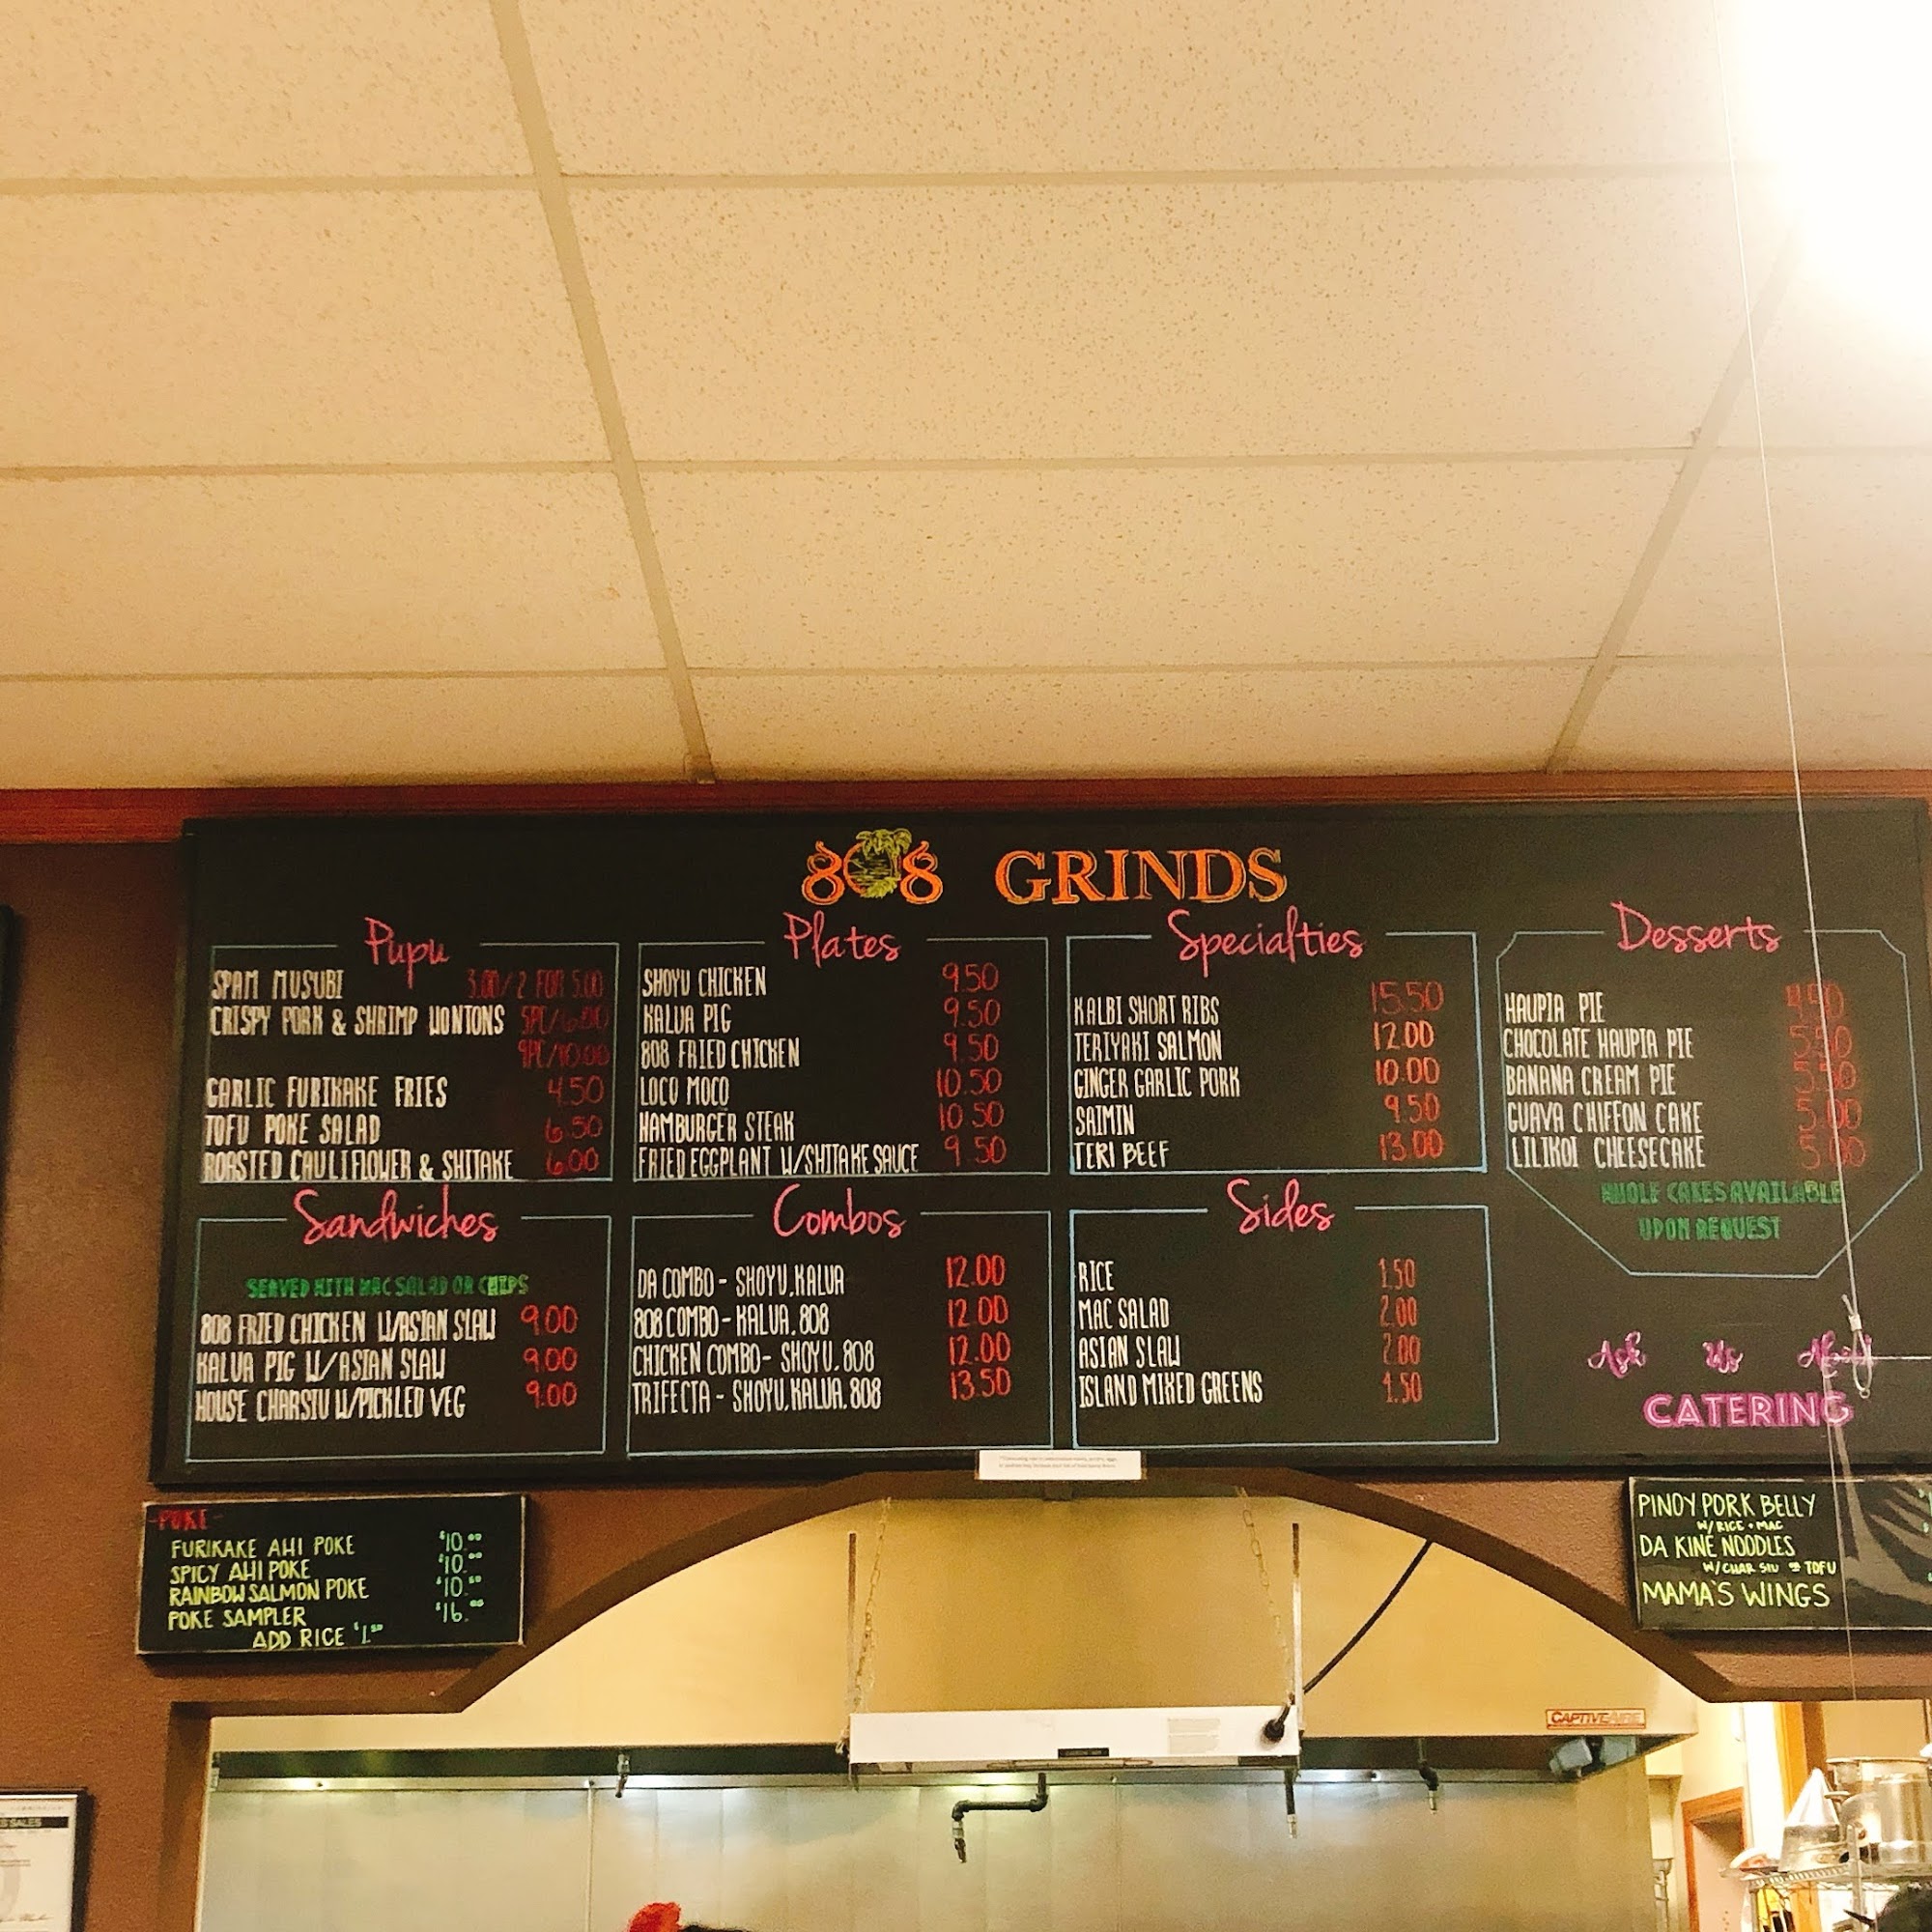 808 GRINDS
Pupu
SPAM MUSUBI 3.00/2 FOR 5.00
CRISPY PORK & SHRIMP WONTONS 5PC/6.00
9PC/10.00
GARLIC FURIKAKE FRIES 4.50
TOFU POKE SALAD 6.50
ROASTED CAULIFLOWER & SHITAKE 6.00
Plates
SHOYU CHICKEN 9.50
KALUA PIG 9.50
808 FRIED CHICKEN 9.50
LOCO MOCO 10.50
HAMBURGER STEAK 10.50
FRIED EGGPLANT W/SHITAKE SAUCE 9.50
Specialties
KALBI SHORT RIBS 15.50
TERIYAKI SALMON 12.00
GINGER GARLIC PORK 10.00
SAIMIN 9.50
TERI BEEF 13.00
Desserts
HAUPIA PIE 4.50
CHOCOLATE HAUPIA PIE 5.50
BANANA CREAM PIE 5.50
GUAVA CHIFFON CAKE 5.00
LILIKOI CHEESECAKE 5.00
WHOLE CAKES AVAILABLE
UPON REQUEST
Sandwiches
SERVED WITH MAC SALAD OR CHIPS
808 FRIED CHICKEN W/ASIAN SLAW 9.00
KALUA PIG W/ASIAN SLAW 9.00
HOUSE CHARSIU W/PICKLED VEG 9.00
Combos
DA COMBO - SHOYU, KALUA 12.00
808 COMBO - KALUA, 808 12.00
CHICKEN COMBO - SHOYU, 808 12.00
TRIFECTA - SHOYU, KALUA, 808 13.50
Sides
RICE 1.50
MAC SALAD 2.00
ASIAN SLAW 2.00
ISLAND MIXED GREENS 1.50
Ask Us About
CATERING
-POKE-
FURIKAKE AHI POKE $10.00
SPICY AHI POKE $10.00
RAINBOW SALMON POKE $10.00
POKE SAMPLER $16.00
ADD RICE $1.50
PINOY PORK BELLY
W/RICE + MAC
DA KINE NOODLES
W/CHAR SIU OR TOFU
MAMA'S WINGS
CAPTIVEAIRE